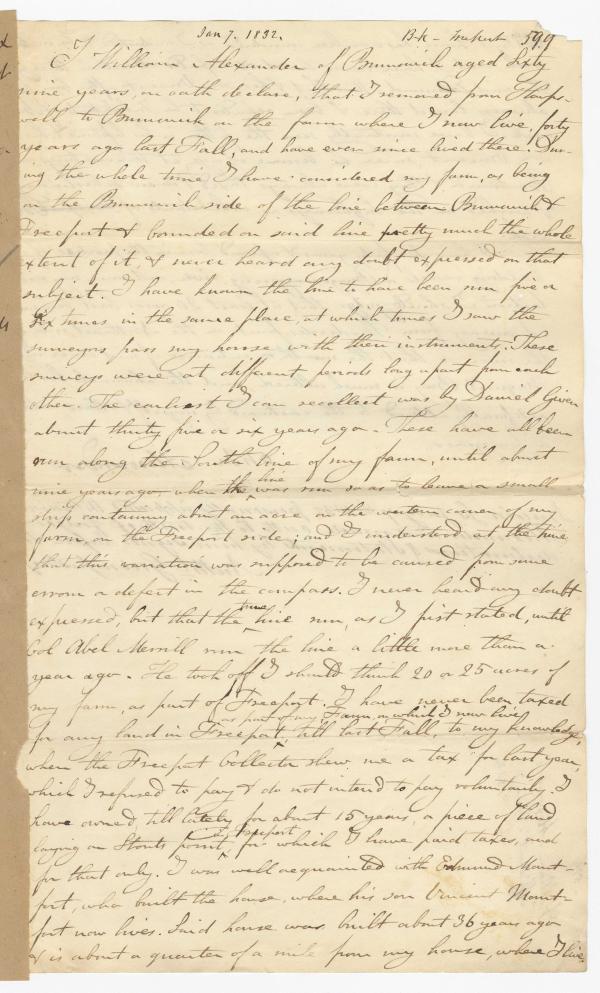 Jan 7. 1832. B-k - Freeport 599
I William Alexander of Brunswick aged Sixty
nine years, on oath declare, that I removed from Harps-
well to Brunswick on the farm where I now live, forty
years ago last Fall, and have ever since lived there. Dur-
ing the whole time I have considered my farm, as being
on the Brunswick side of the line between Brunswick &
Freeport & bounded on said line pretty much the whole
extent of it, & never heard any doubt expressed on that
subject. I have known the line to have been run five or
six times in the same place, at which times I saw the
surveyors, pass my house with their instruments. These
surveys were at different periods long apart from each
other. The earliest I can recollect was by Daniel Given
about thirty five or six years ago. These have all been
run along the South line of my farm, until about
nine years ago when the line was run so as to leave a small
strip containing about an acre on the western corner of my
farm, on the Freeport side; and I understood at the time
that this variation was supposed to be caused from some
error or defect in the compass. I never heard any doubt
expressed, but that the true line run, as I first stated, until
Col Abel Merrill run the line a little more than a
year ago. He took off I should think 20 or 25 acres of
my farm, as part of Freeport. I have never been taxed
for any land in Freeport, as part of my Farm, on which I now live, till last Fall, to my knowledge,
when the Freeport Collector shew me a tax for last year,
which I refused to pay & do not intend to pay voluntarily. I
have owned, till lately for about 15 years, a piece of land
laying on Stouts point, in Freeport, for which I have paid taxes, and
for that only. I was well acquainted with Edmund Mount-
fort, who built the house, where his son Vincent Mount-
fort now lives. Said house was built about 36 years ago
& is about a quarter of a mile from my house, where I live.